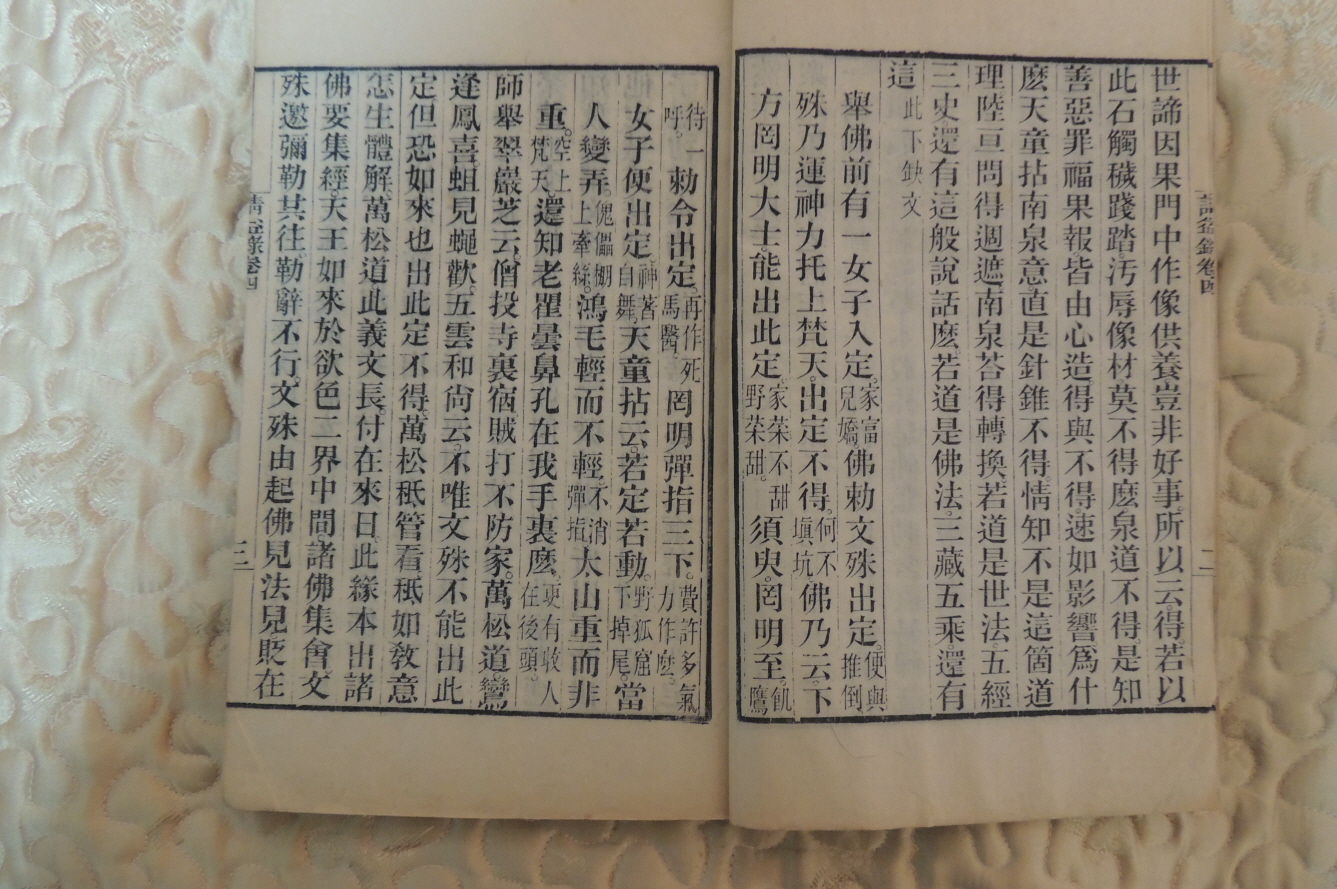 世諦因果門中作像供養豈非好事。所以云。得。若以
此石觸穢踐踏。汚辱像材。莫不得麽。泉道不得。是知
善惡罪福果報。皆由心造。得與不得。速如影響。爲什
麽天童拈南泉意。直是針錐不得。情知不是這箇道
理。陸亘問得週遮。南泉荅得轉換。若道是世法。五經
三史還有這般說話麽。若道是佛法。三藏五乘。還有
這此下缺文
舉佛前有一女子入定。家富兒嬌佛勅文殊出定。便與推倒
殊乃運神力托上梵天。出定不得。何不塡坑佛乃云。下
方罔明大士。能出此定。家菜不甜野菜甜。須臾。罔明至。飢鷹
二
待一呼。勅令出定。再作死馬醫。罔明彈指三下。費許多氣力作麽。
女子便出定。神著自舞。天童拈云。若定若動。野狐窟下掉尾。當
人變弄。傀儡棚上牽絲。鴻毛輕而不輕。不消彈指太山重而非
重。空上梵天。還知老瞿曇鼻孔在我手裏麽。更有收人在後頭。
師舉翠巖芝云。僧投寺裏宿。賊打不防家。萬松道。鸞
逢鳳喜。蛆見蠅歡。五雲和尙云。不唯文殊不能出此
定。但恐如來也出此定不得。萬松秪管看秪如敎意
怎生體解。萬松道此義文長。付在來日。此緣本出諸
佛要集經。天王如來於欲色二界中間。諸佛集會。文
殊邀彌勒其往。勒辭不行。文殊由起佛見法見貶在
請益錄卷四
三